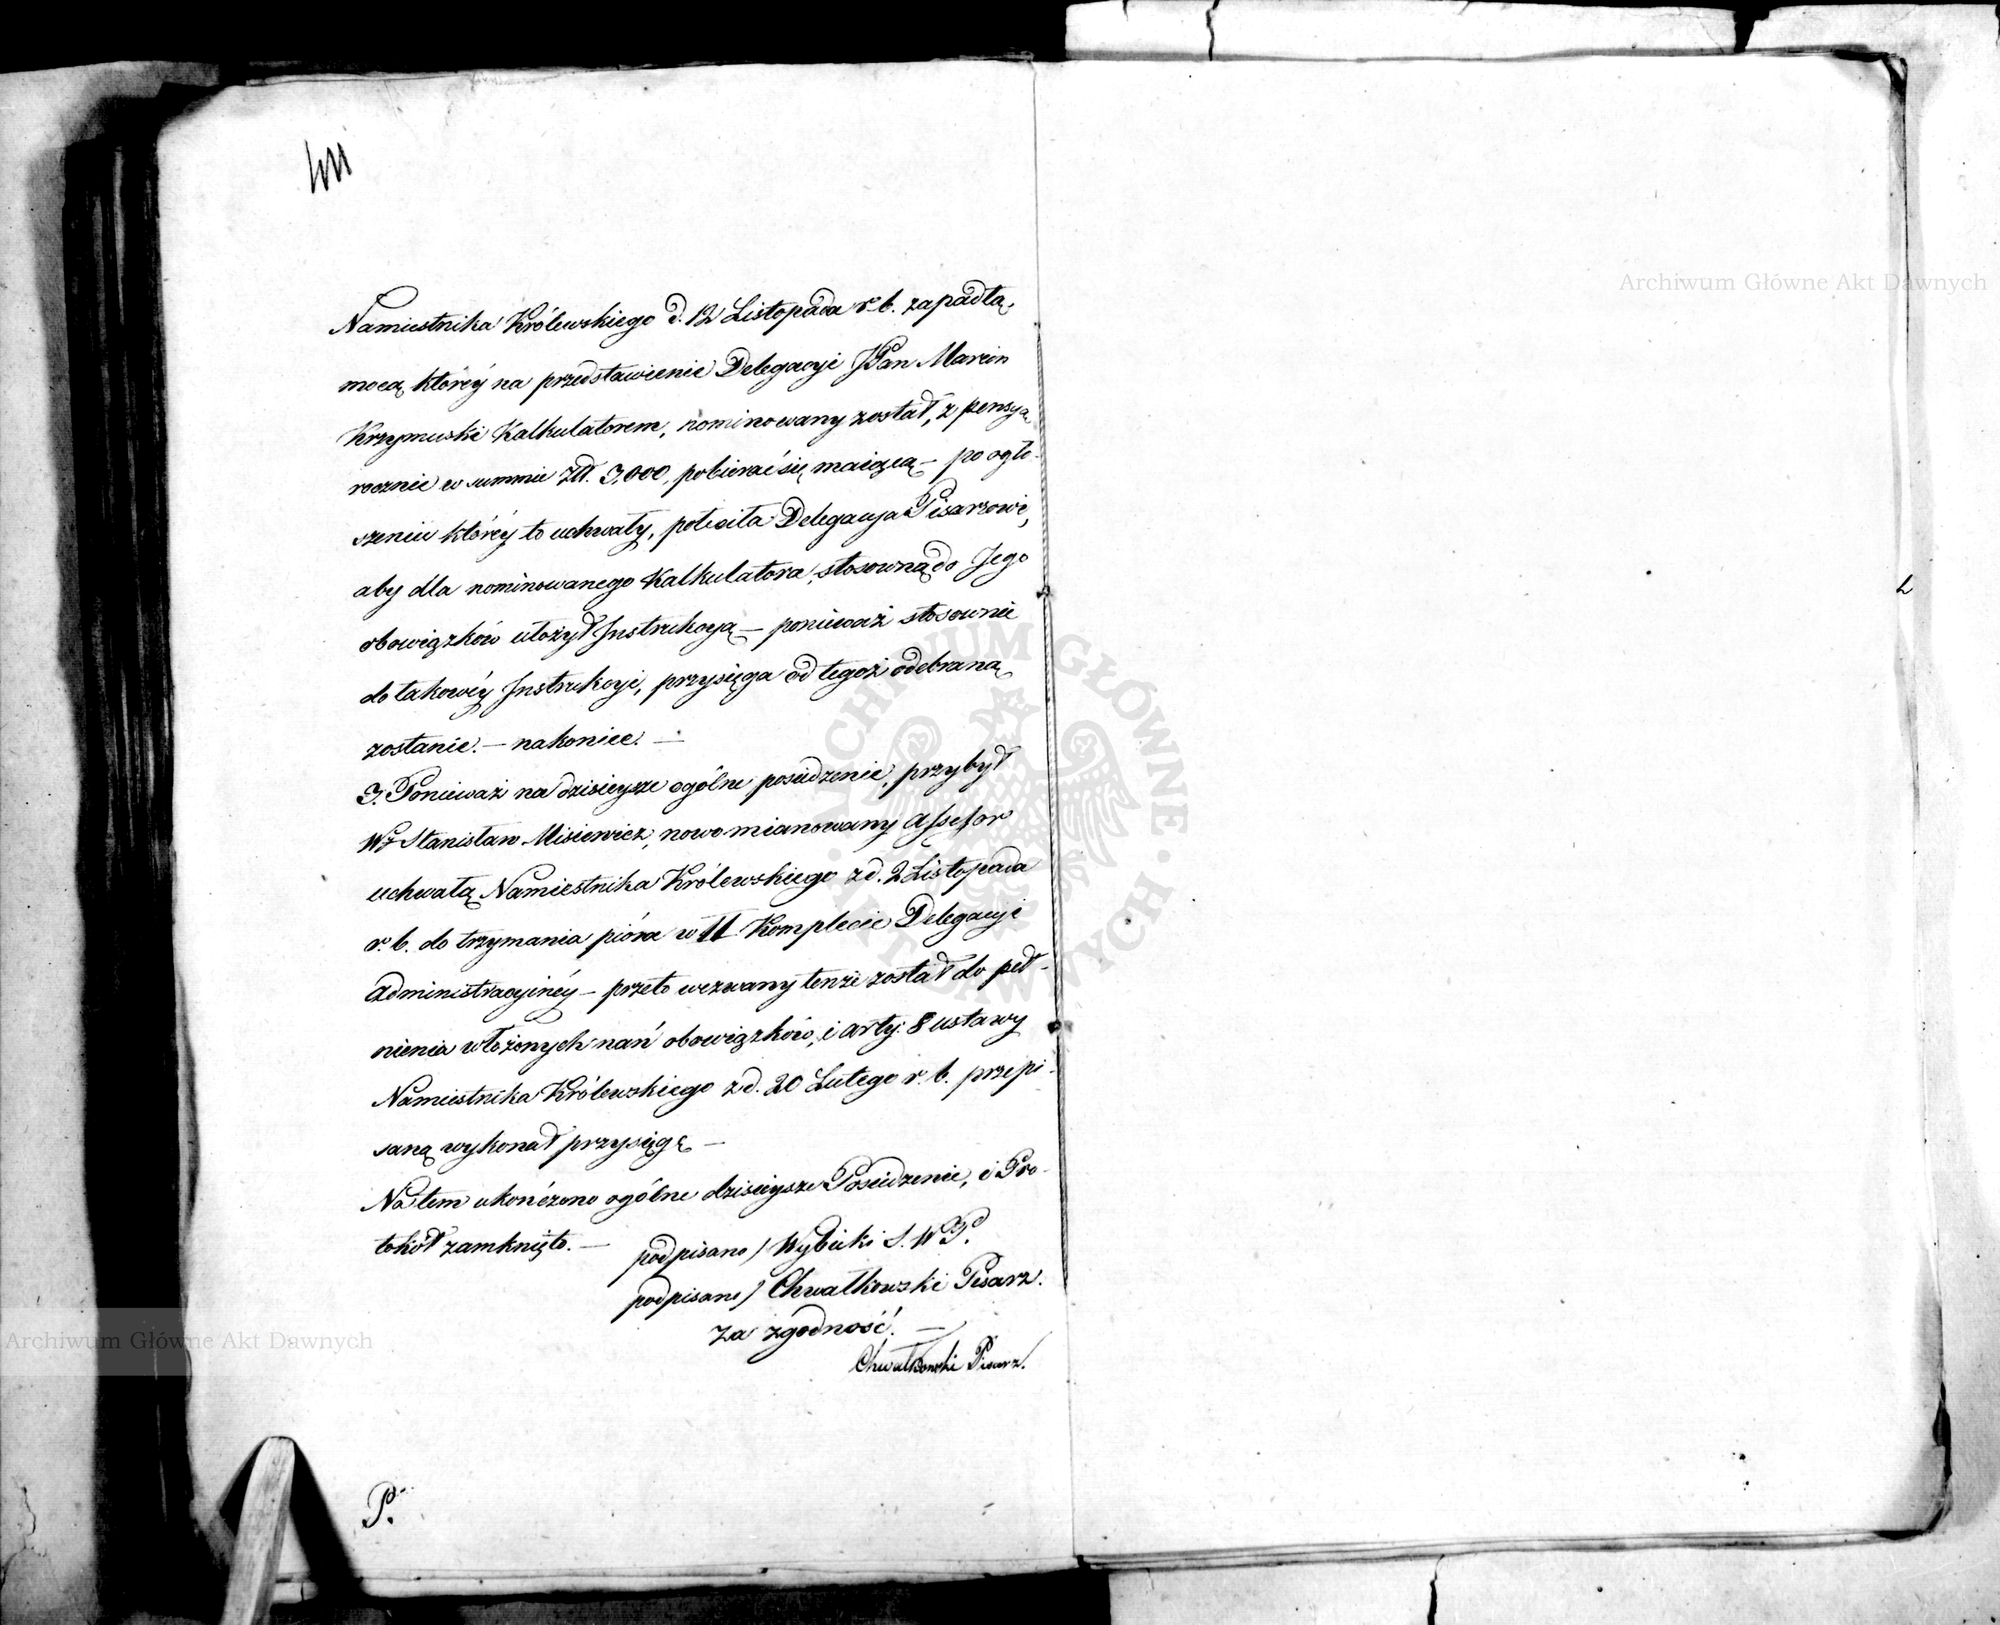 Namiestnika Królewskiego d. 12 Listopada r. b. zapadłą,
mocą któréy na przedstawienie Delegacyi JPan Marcin
Krzymuski Kalkulatorem, nominowany został, z pensyą
rocznie w summie Złł. 3,000, pobierać się maiącą – po ogło-
szeniu któréy to uchwały, poleciła Delegacja Pisarzowi,
aby dla nominowanego Kalkulatora, stosowną do Jego
obowiązków ułożył Instrukcyą – ponieważ stosownie
do takowéy Instrukcyi, przysięga od tegoż odebraną
zostanie. – nakoniec. –
3. Ponieważ na dzisieysze ogólne posiedzenie, przybył
Wy Stanisław Misiewicz, nowo mianowany Assessor
uchwałą Namiestnika Królewskiego z d. 2 Listopada
r. b. do trzymania pióra w II Komplecie Delegacyi
Administracyinéy – przeto wezwany tenże został do peł-
nienia włożonych nań obowiązków, i arty: 8 ustawy
Namiestnika Królewskiego z d. 20 Lutego r. b. przepi-
saną wykonał przysięgę –
Na tem ukończono ogólne dzisieysze Posiedzenie, i Pro-
tokół zamknięto. – podpisano) Wybicki S. W P.
podpisano) Chwałkowski Pisarz.
Za zgodność. –
Chwałkowski Pisarz.
P.
Archiwum Główne Akt Dawnych
Archiwum Główne Akt Dawnych
ARCHIWUM GŁÓWNE AKT DAWNYCH